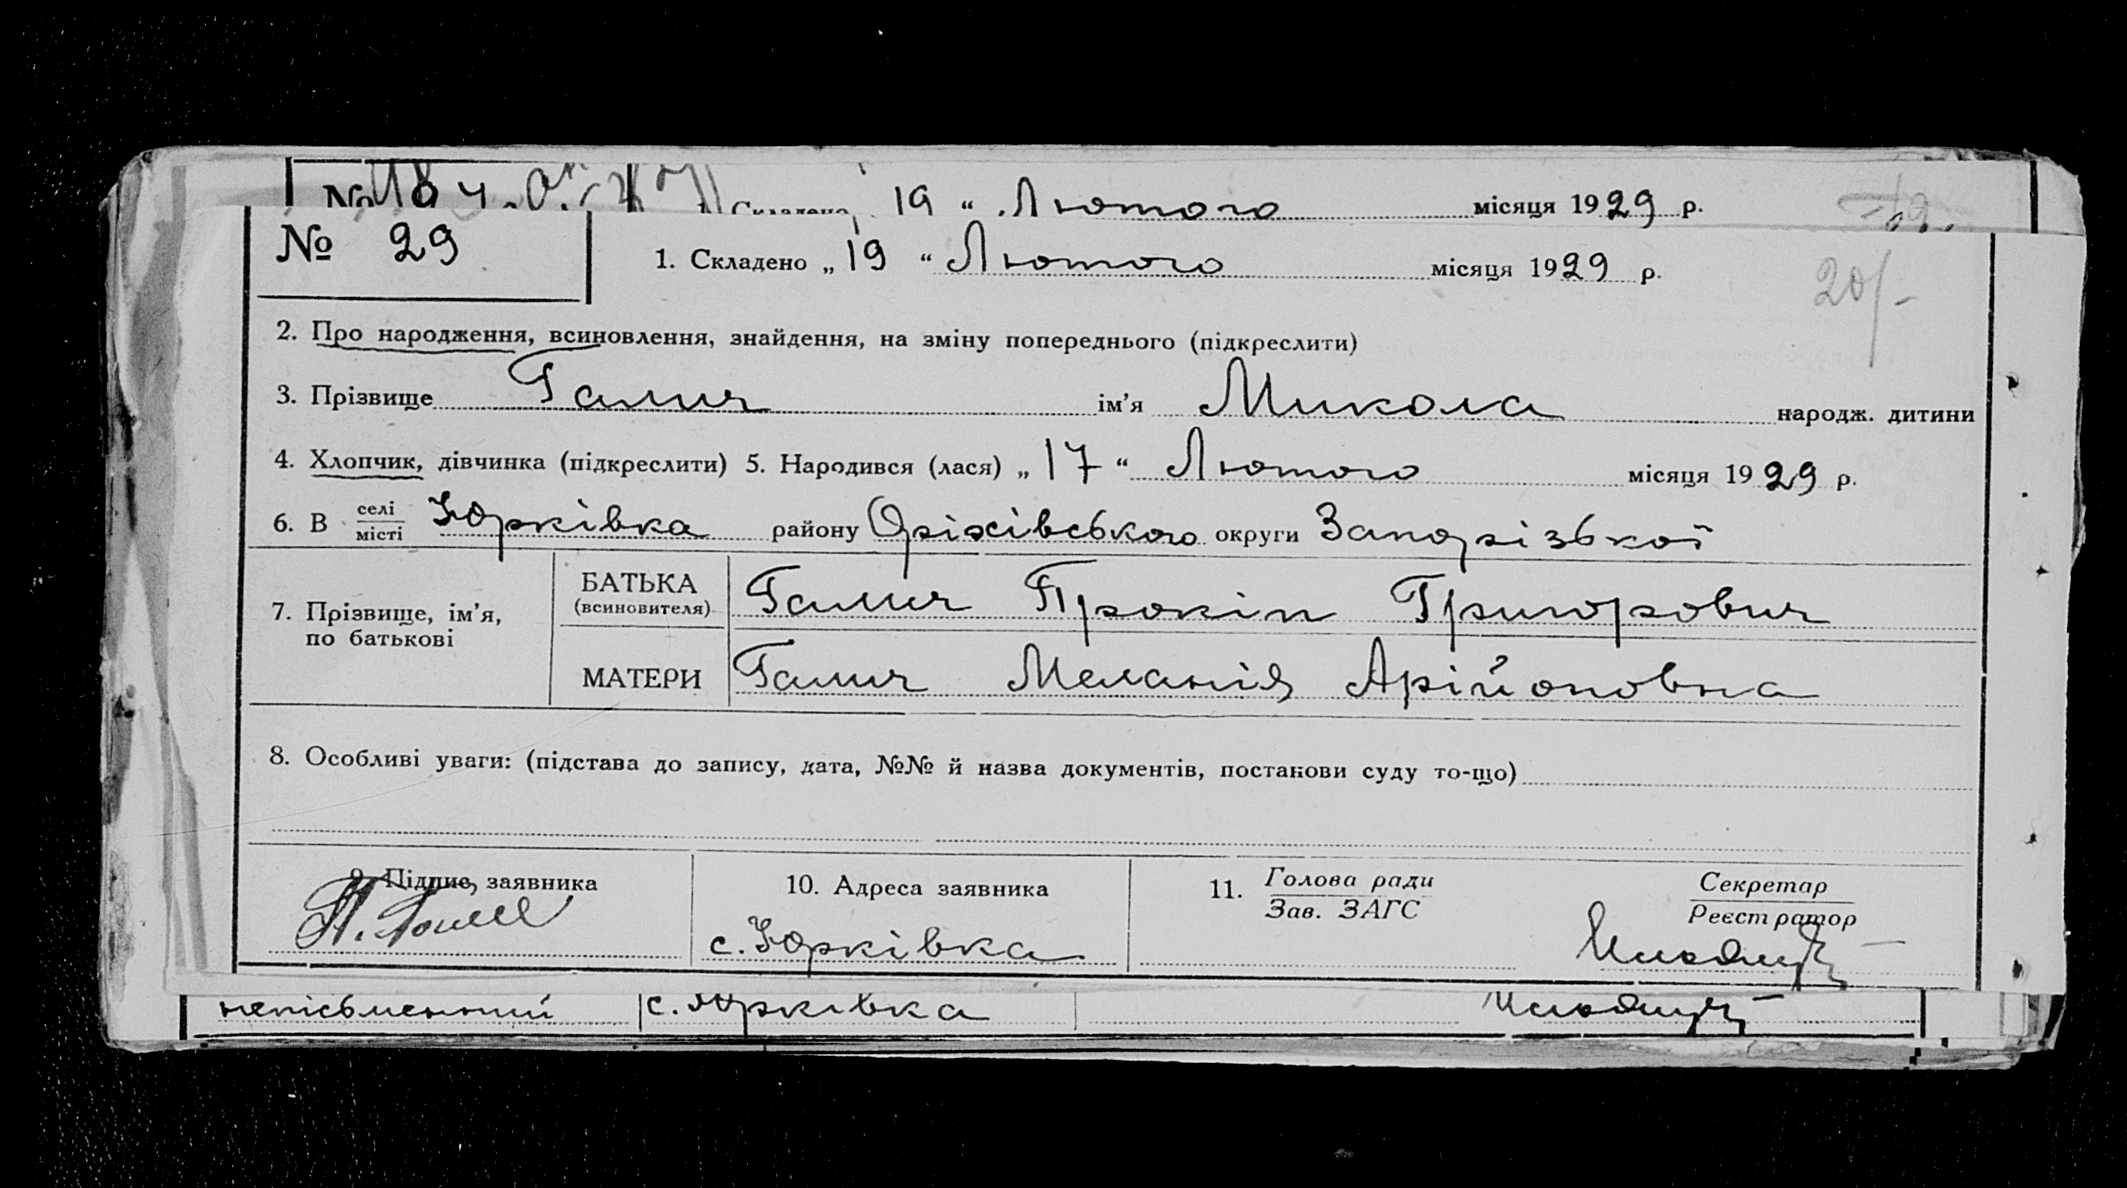 № 1. Складено „ 19 “ Лютого місяця 1929 р.
№ 29 1. Складено „ 19 “ Лютого місяця 1929 р.
20/-
2. Про народження, всиновлення, знайдення, на зміну попереднього (підкреслити)
3. Прізвище Галич ім’я Микола народж. дитини
4. Хлопчик, дівчинка (підкреслити) 5. Народився (лася) „ 17 “ Лютого місяця 1929 р.
6. В селі/місті Юрківка району Оріхівського округи Запорізької
7. Прізвище, ім’я, по батькові
БАТЬКА (всиновителя) Галич Прокіп Григорович
МАТЕРИ Галич Меланія Арійоновна
8. Особливі уваги: (підстава до запису, дата, №№ й назва документів, постанови суду то-що)
9. Підпис заявника 10. Адреса заявника 11. Голова ради Секретар
Зав. ЗАГС Реєстратор
П. Галич с. Юрківка
непісьменний с. Юрківка